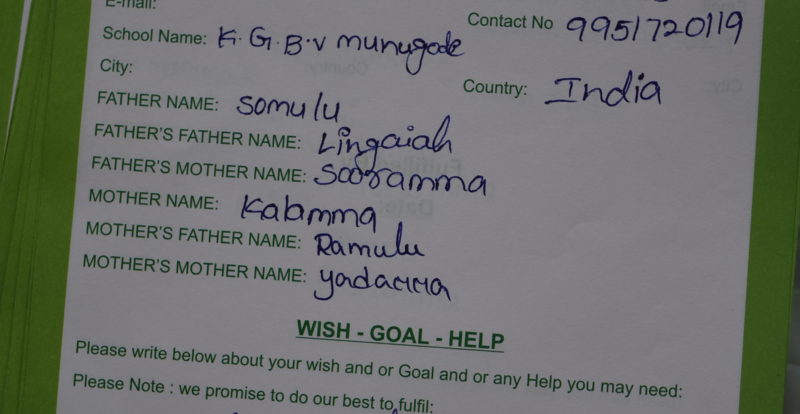 E-mail:
Contact No 9951720119
School Name: K.G.B.V munugode
City:
Country: India
FATHER NAME: Somulu
FATHER'S FATHER NAME: Lingaiah
FATHER'S MOTHER NAME: Sooramma
MOTHER NAME: Kalamma
MOTHER'S FATHER NAME: Ramulu
MOTHER'S MOTHER NAME: yadamma
WISH - GOAL - HELP
Please write below about your wish and or Goal and or any Help you may need:
Please Note : we promise to do our best to fulfil: